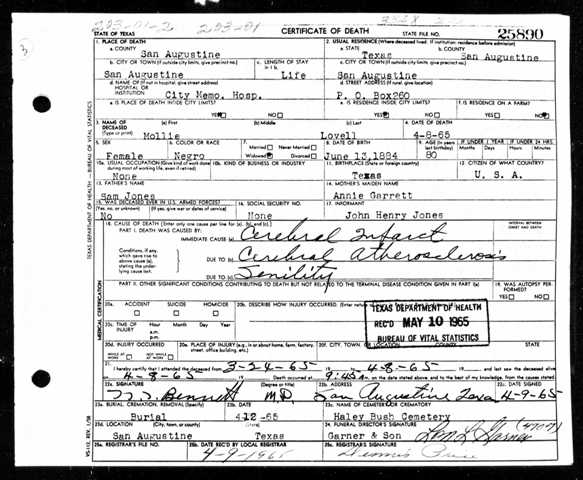 223-01-2 223-01
STATE OF TEXAS CERTIFICATE OF DEATH STATE FILE NO. 25890
1. PLACE OF DEATH 2. USUAL RESIDENCE (Where deceased lived. If institution: residence before admission)
a. COUNTY San Augustine a. STATE Texas b. COUNTY San Augustine
b. CITY OR TOWN (If outside city limits, give precinct no.) c. LENGTH OF STAY in 1 b. c. CITY OR TOWN (If outside city limits, give precinct no.)
San Augustine Life San Augustine
d. NAME OF (If not in hospital, give street address) HOSPITAL OR INSTITUTION City Memo. Hosp. d. STREET ADDRESS (If rural, give location) P. O. Box260
e. IS PLACE OF DEATH INSIDE CITY LIMITS? YES NO e. IS RESIDENCE INSIDE CITY LIMITS? YES NO f. IS RESIDENCE ON A FARM? YES NO
3. NAME OF DECEASED (Type or print) (a) First Mollie (b) Middle (c) Last Lovell 4. DATE OF DEATH 4-8-65
5. SEX Female 6. COLOR OR RACE Negro 7. Married Never Married Widowed Divorced 8. DATE OF BIRTH June 13,1884 9. AGE (In years last birthday) 80 IF UNDER 1 YEAR Months Days IF UNDER 24 HRS. Hours Min.
10a. USUAL OCCUPATION (Give kind of work done during most of working life, even if retired) None 10b. KIND OF BUSINESS OR INDUSTRY 11. BIRTHPLACE (State or foreign country) Texas 12. CITIZEN OF WHAT COUNTRY? U. S. A.
13. FATHER'S NAME Sam Jones 14. MOTHER'S MAIDEN NAME Annie Garrett
15. WAS DECEASED EVER IN U.S. ARMED FORCES? (Yes, no, or unknown) (If yes, give war or dates of service) No 16. SOCIAL SECURITY NO. None 17. INFORMANT John Henry Jones
18. CAUSE OF DEATH (Enter only one cause per line for (a), (b), and (c).) INTERVAL BETWEEN ONSET AND DEATH
PART I. DEATH WAS CAUSED BY:
IMMEDIATE CAUSE (a) Cerebral Infarct
Conditions, if any, which gave rise to above cause (a), stating the underlying cause last.
DUE TO (b) Cerebral Atherosclerosis
DUE TO (c) Senility
PART II. OTHER SIGNIFICANT CONDITIONS CONTRIBUTING TO DEATH BUT NOT RELATED TO THE TERMINAL DISEASE CONDITION GIVEN IN PART I (a) 19. WAS AUTOPSY PERFORMED? YES NO
20a. ACCIDENT SUICIDE HOMICIDE 20b. DESCRIBE HOW INJURY OCCURRED. (Enter nature
20c. TIME OF INJURY Hour a.m. p.m. Month Day Year
TEXAS DEPARTMENT OF HEALTH
REC'D MAY 10 1965
BUREAU OF VITAL STATISTICS
20d. INJURY OCCURRED WHILE AT WORK NOT WHILE AT WORK 20e. PLACE OF INJURY (e.g., in or about home, farm, factory, street, office building, etc.) 20f. CITY, TOWN, OR LOCATION COUNTY STATE
21. I hereby certify that I attended the deceased from 3-24-65 4-8-65 and last saw the deceased alive
4-8-65 Death occurred at 9:45 m. on the date stated above; and to the best of my knowledge, from the causes stated
22a. SIGNATURE Bennett (Degree or title) M.D. 22b. ADDRESS San Augustine Texas 22c. DATE SIGNED 4-9-65
23a. BURIAL, CREMATION, REMOVAL (Specify) Burial 23b. DATE 4-12-65 23c. NAME OF CEMETERY OR CREMATORY Haley Bush Cemetery
23d. LOCATION (City, town, or county) (State) San Augustine Texas 24. FUNERAL DIRECTOR'S SIGNATURE Garner & Son Garner (4707)
25a. REGISTRAR'S FILE NO. 25b. DATE REC'D BY LOCAL REGISTRAR 4-9-1965 25c. REGISTRAR'S SIGNATURE
TEXAS DEPARTMENT OF HEALTH — BUREAU OF VITAL STATISTICS
MEDICAL CERTIFICATION
VS-112, REV. 1/58